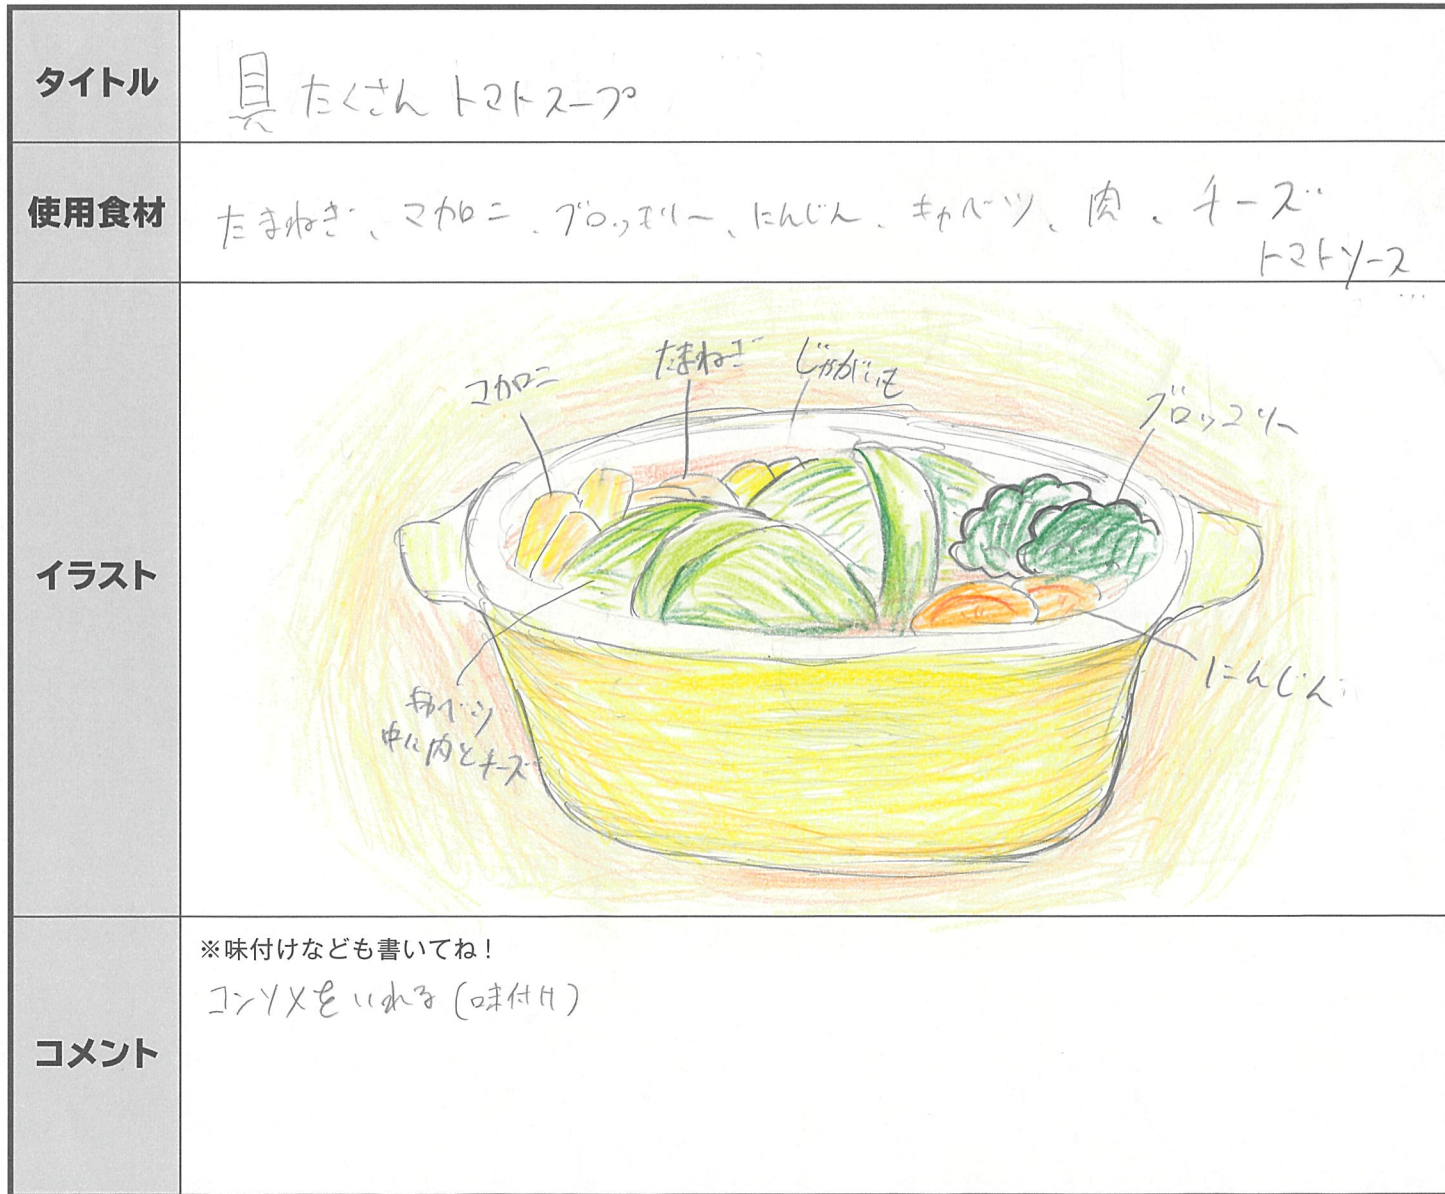 タイトル
具たくさんトマトスープ
使用食材
たまねぎ、マカロニ、ブロッコリー、にんじん、キャベツ、肉、チーズ
トマトソース
イラスト
マカロニ
たまねぎ
じゃがいも
ブロッコリー
にんじん
キャベツ
中に肉とチーズ
コメント
※味付けなども書いてね!
コンソメをいれる(味付け)